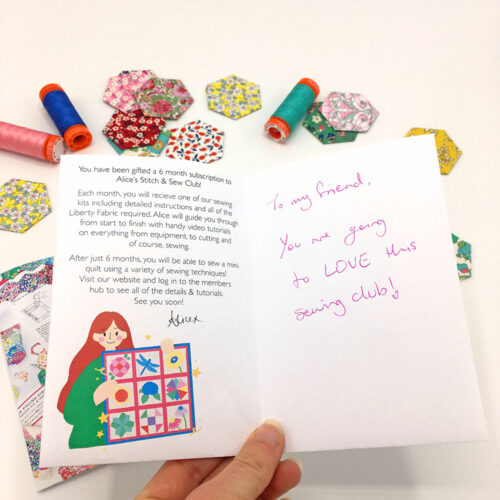 You have been gifted a 6 month subscription to
Alice's Stitch & Sew Club!
Each month, you will recieve one of our sewing
kits including detailed instructions and all of the
Liberty Fabric required. Alice will guide you through
from start to finish with handy video tutorials
on everything from equipment, to cutting and
of course, sewing.
After just 6 months, you will be able to sew a mini
quilt using a variety of sewing techniques!
Visit our website and log in to the members
hub to see all of the details & tutorials.
See you soon!
Alice x
To my friend,
You are going
to LOVE this
sewing club!